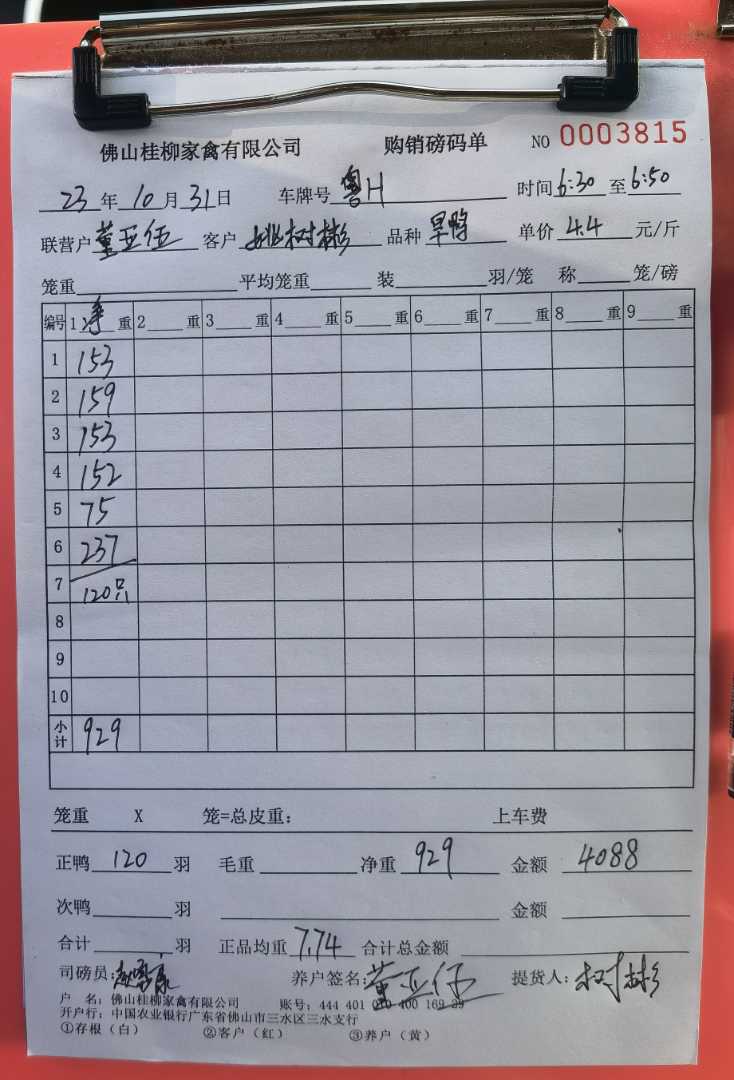 佛山桂柳家禽有限公司 购销磅码单 NO 0003815
23 年 10 月 31 日 车牌号 鲁H 时间 6:30 至 6:50
联营户 董亚伍 客户 姚树彬 品种 旱鸭 单价 4.4 元/斤
笼重 平均笼重 装 羽/笼 称 笼/磅
编号 1 净 重 2 重 3 重 4 重 5 重 6 重 7 重 8 重 9 重
1 153
2 159
3 153
4 152
5 75
6 237
7 120只
8
9
10
小计 929
笼重 X 笼=总皮重: 上车费
正鸭 120 羽 毛重 净重 929 金额 4088
次鸭 羽 金额
合计 羽 正品均重 7.74 合计总金额
司磅员: 养户签名: 董亚伍 提货人: 树彬
户 名: 佛山桂柳家禽有限公司 账号: 444 401 010 400 169 39
开户行: 中国农业银行广东省佛山市三水区三水支行
①存根(白) ②客户(红) ③养户(黄)